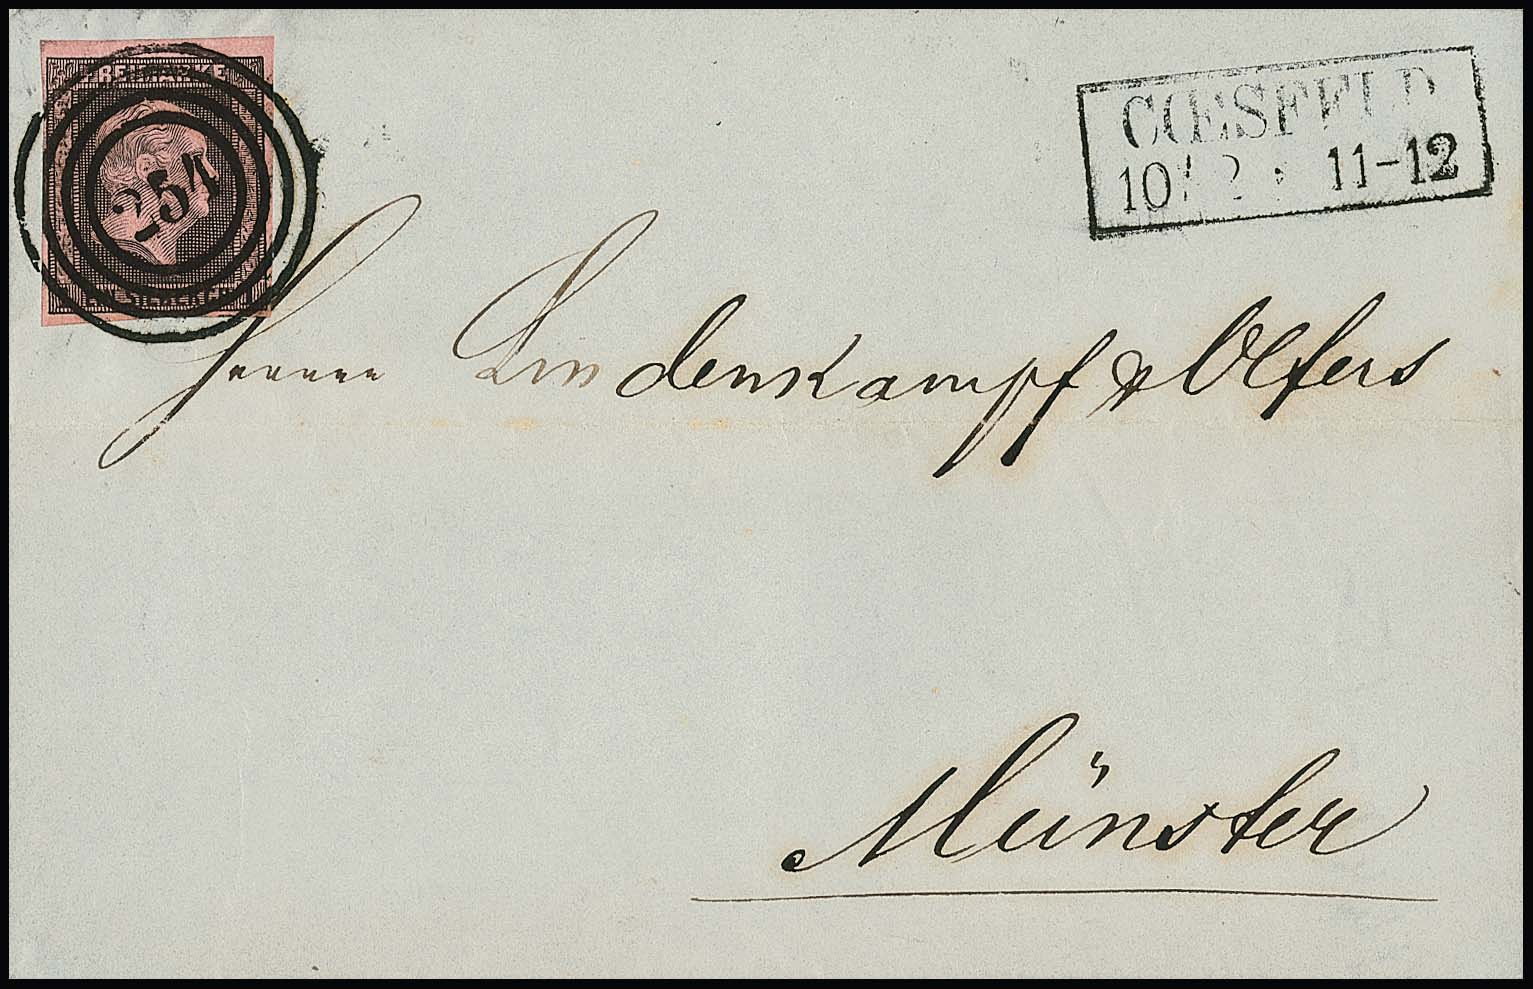 FREIMARKE
254
CŒSFELD
10 2 11-12
Herrn Lindenkampf & Olfers
Münster